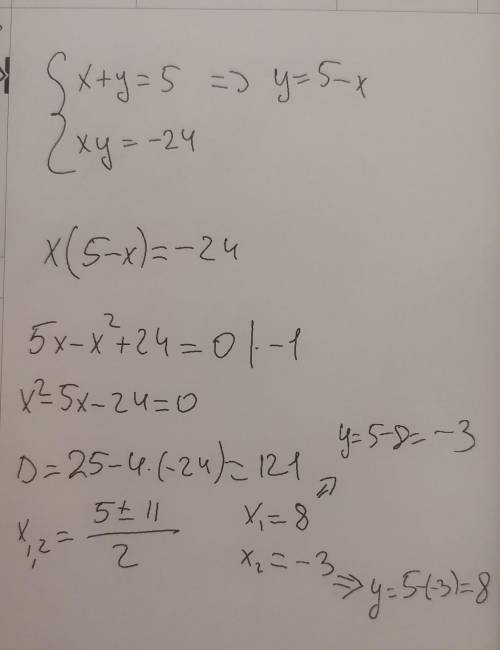 { x+y=5 => y=5-x
xy=-24
x(5-x)=-24
5x-x²+24=0 |·-1
x²-5x-24=0
D=25-4·(-24)=121
x₁,₂=(5±11)/2
x₁=8 => y=5-8=-3
x₂=-3 => y=5-(-3)=8